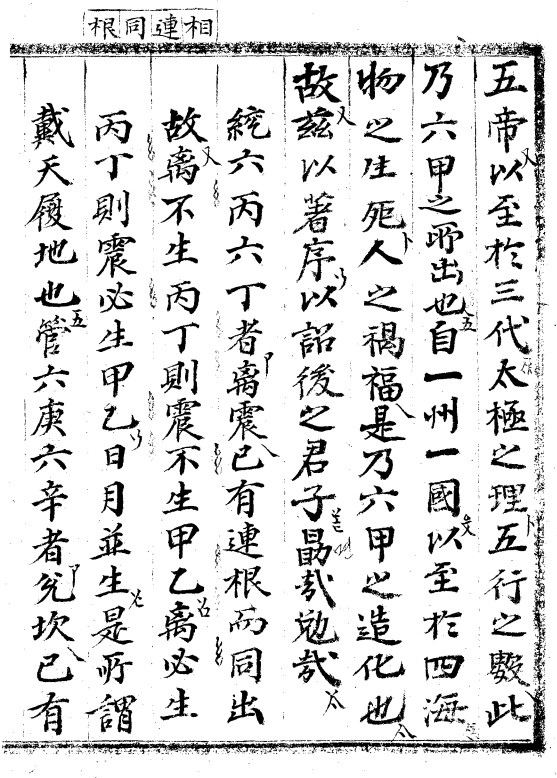 相連同根
五帝以至於三代太極之理五行之數此
乃六甲之所出也自一州一國以至於四海
物之生死人之禍福是乃六甲之造化也
故茲以著序以詔後之君子勗哉勉哉
統六丙六丁者离震已有連根而同出
故离不生丙丁則震不生甲乙离必生
丙丁則震必生甲乙日月並生是所謂
戴天履地也管六庚六辛者兌坎已有